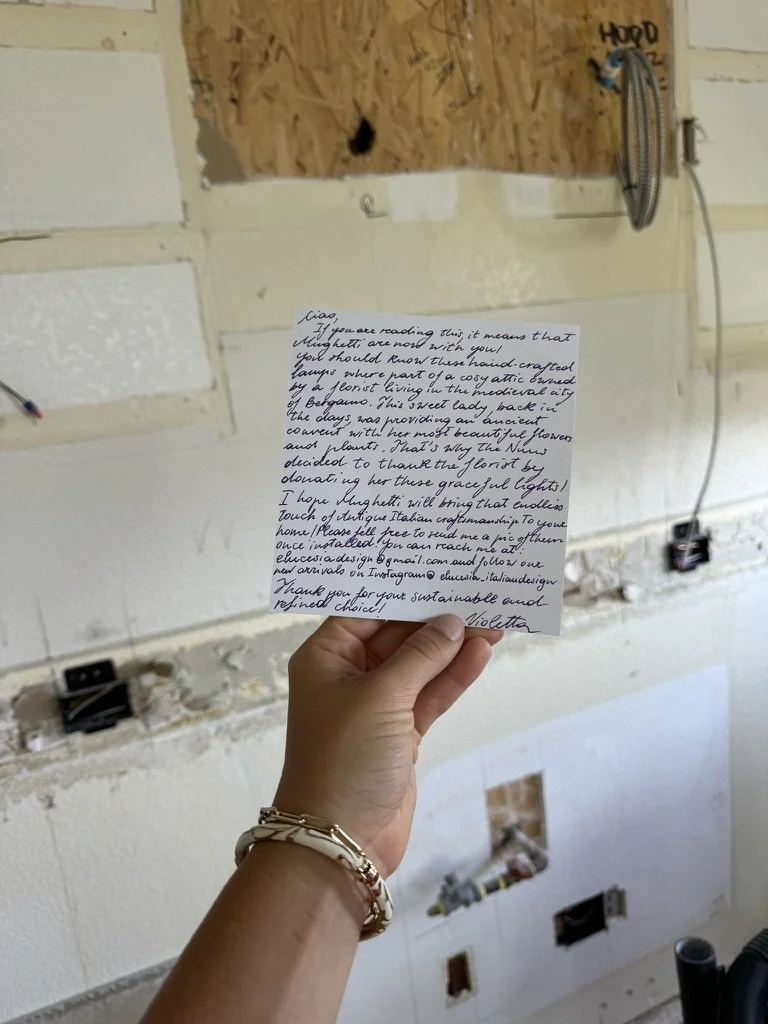 HOOD
Ciao,
If you are reading this, it means that
Mughetti are now with you!
You should know these hand-crafted
lamps where part of a cosy attic owned
by a florist living in the medieval city
of Bergamo. This sweet lady, back in
the days, was providing an ancient
convent with her most beautiful flowers
and plants. That's why the Nuns
decided to thank the florist by
donating her these graceful lights!
I hope Mughetti will bring that endless
touch of Antique Italian craftsmanship to your
home! Please fell free to send me a pic of them
once installed! You can reach me at:
elucesiadesign@gmail.com and follow our
new arrivals on Instagram@ elucesia_italiandesign
Thank you for your sustainable and
refined choice!
Violetta